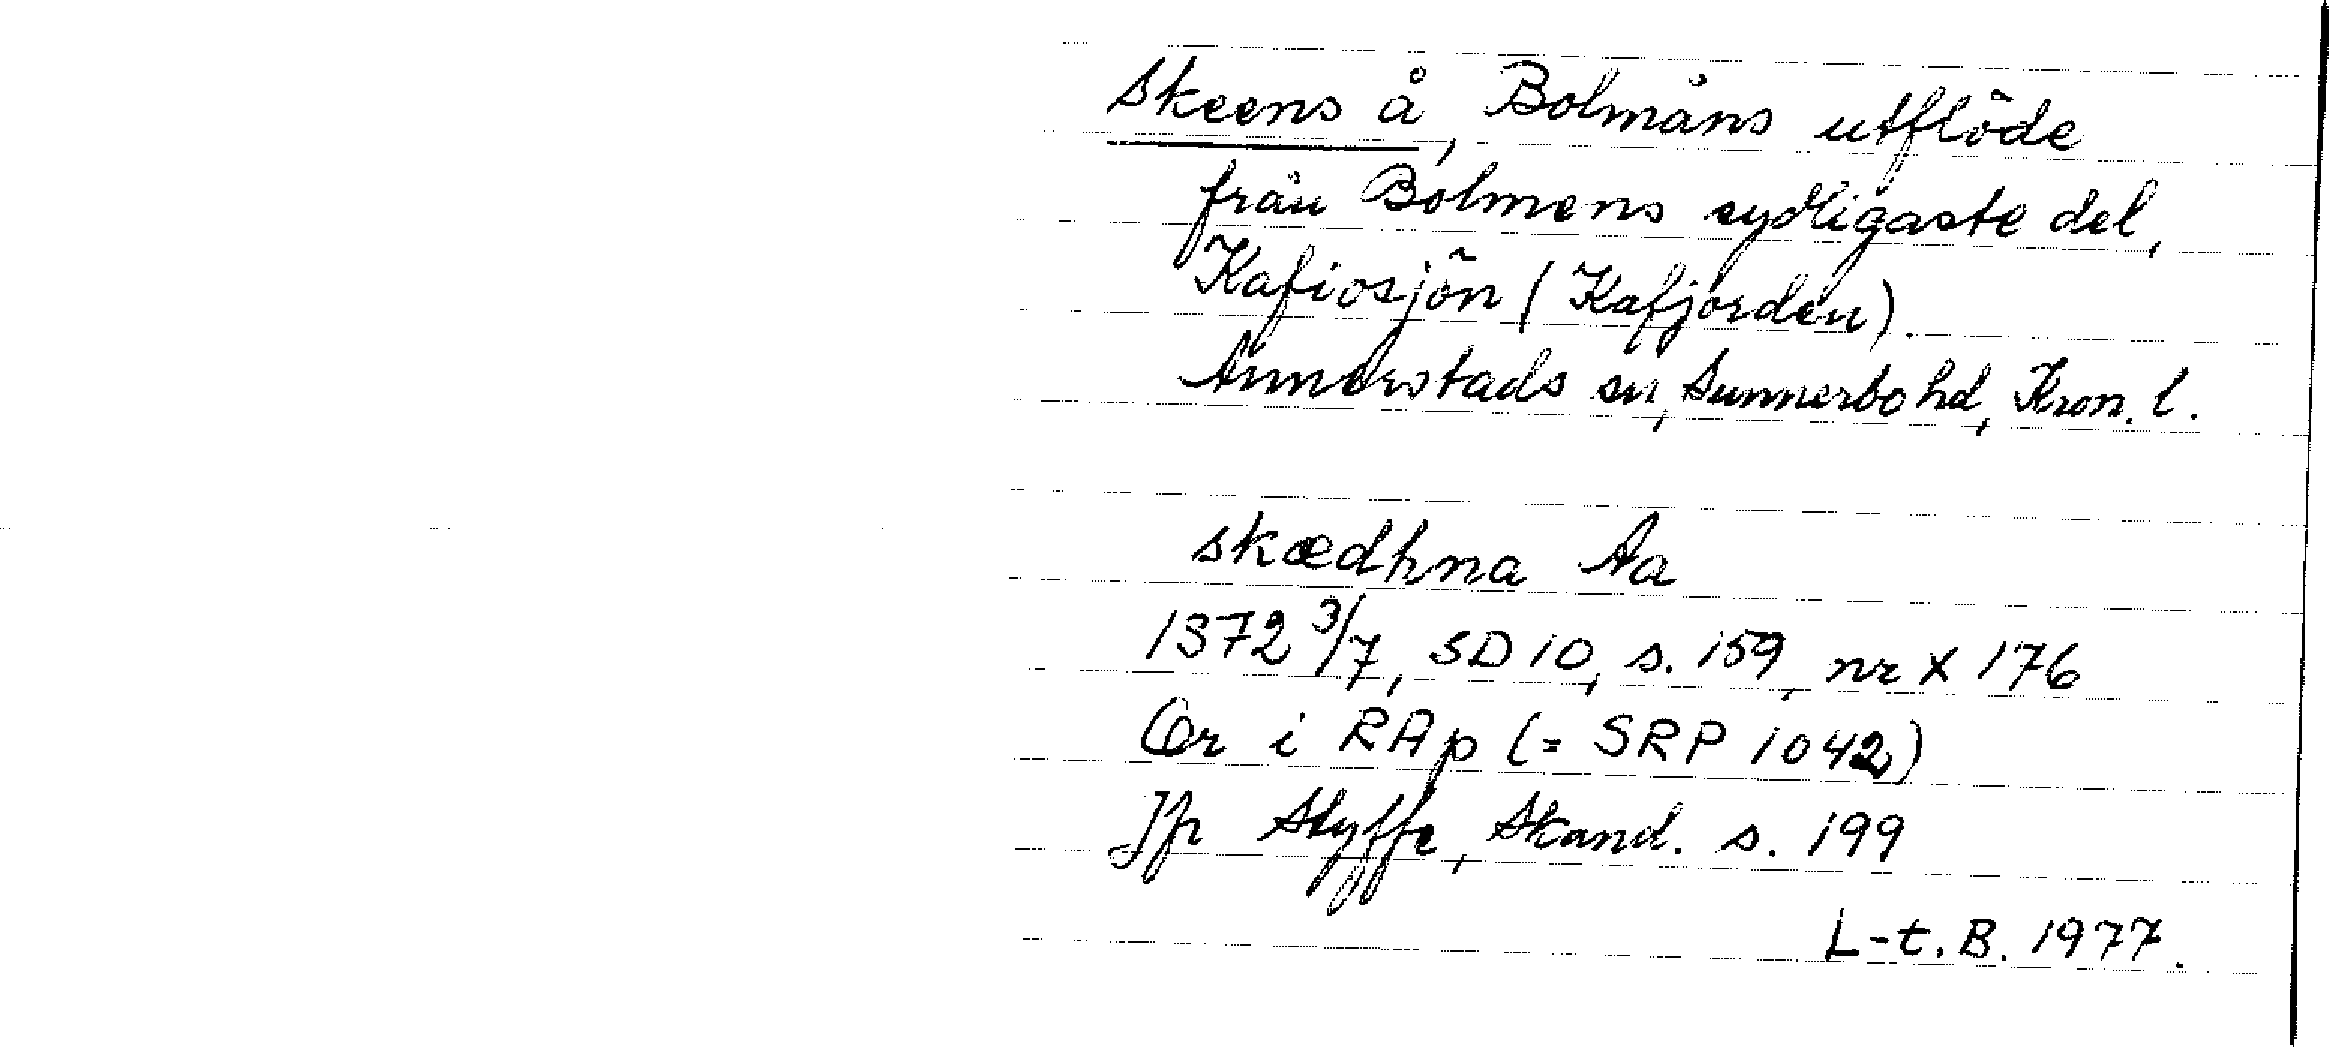 Skeens å, Bolmåns utflöde
från Bolmens sydligaste del,
Kafiosjön (Kafjorden).
Annerstads sn, Sunnerbo hd, Kron. l.
skædhna Aa
1372 3/7, SD 10, s. 159, nr X 176
Or i RAp (= SRP 1042)
Jfr Styffe, Skand. s. 199
L-t. B. 1977.